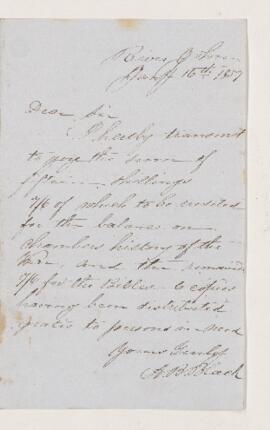 River John
Jany 16th 1857
Dear Sir
I hereby transmit
to you the sum of
fifteen shillings
7/6 of which to be credited
for the balance on
Chambers history of the
War, and the remaind
7/6 for the Bibles 6 copies
having been distributed
gratis to persons in need
Yours truly
A. B. Black